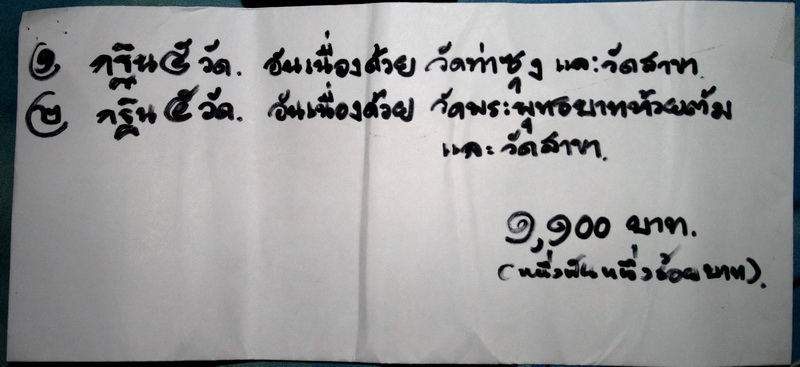 ๑ กฐิน ๕ วัด. อันเนื่องด้วย วัดท่าซุง และวัดสาขา.
๒ กฐิน ๕ วัด. อันเนื่องด้วย วัดพระพุทธบาทห้วยต้ม
และวัดสาขา.
๑,๑๐๐ บาท.
(หนึ่งพันหนึ่งร้อยบาท).